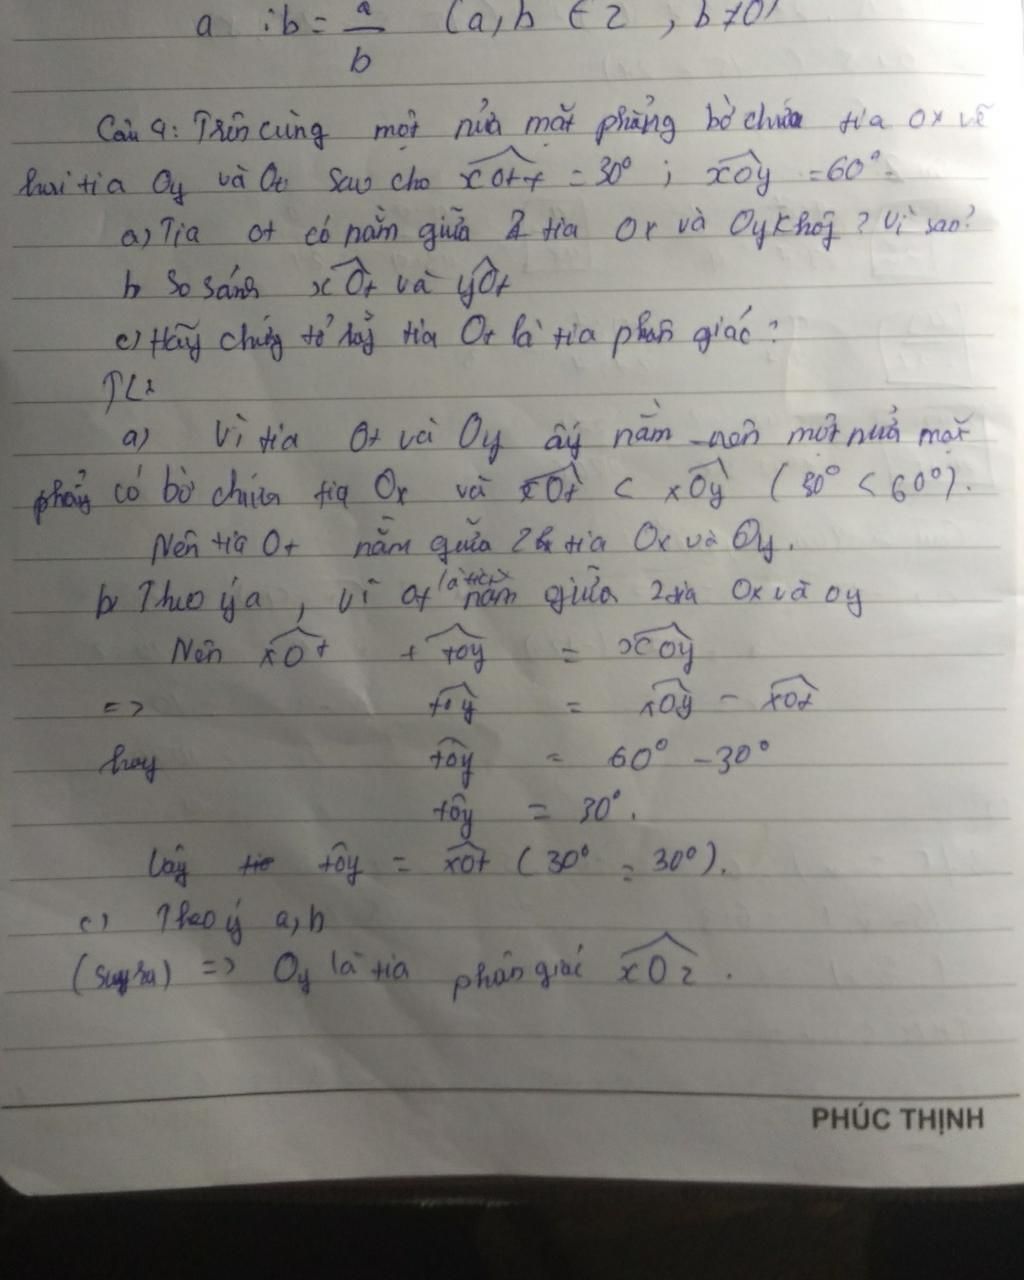 a : b = a/b (a, b ∈ Z, b ≠ 0)
Câu 4: Trên cùng một nửa mặt phẳng bờ chứa tia Ox vẽ
hai tia Oy và Ot sao cho xOt = 30° ; xOy = 60°.
a) Tia Ot có nằm giữa 2 tia Ox và Oy không ? Vì sao?
b, So sánh xOt và yOt
c) Hãy chứng tỏ rằng tia Ot là tia phân giác ?
TL:
a) Vì tia Ot và Oy nằm trên một nửa mặt
phẳng có bờ chứa tia Ox và xOt < xOy (30° < 60°).
Nên tia Ot nằm giữa 2 tia Ox và Oy.
b, Theo ý a, vì Ot là tia nằm giữa 2 tia Ox và Oy
Nên xOt + tOy = xOy
=> tOy = xOy - xOt
hay tOy = 60° - 30°
tOy = 30°.
Vậy tOy = xOt (30° = 30°).
c) Theo ý a, b
(Suy ra) => Oy là tia phân giác xOz.
PHÚC THỊNH